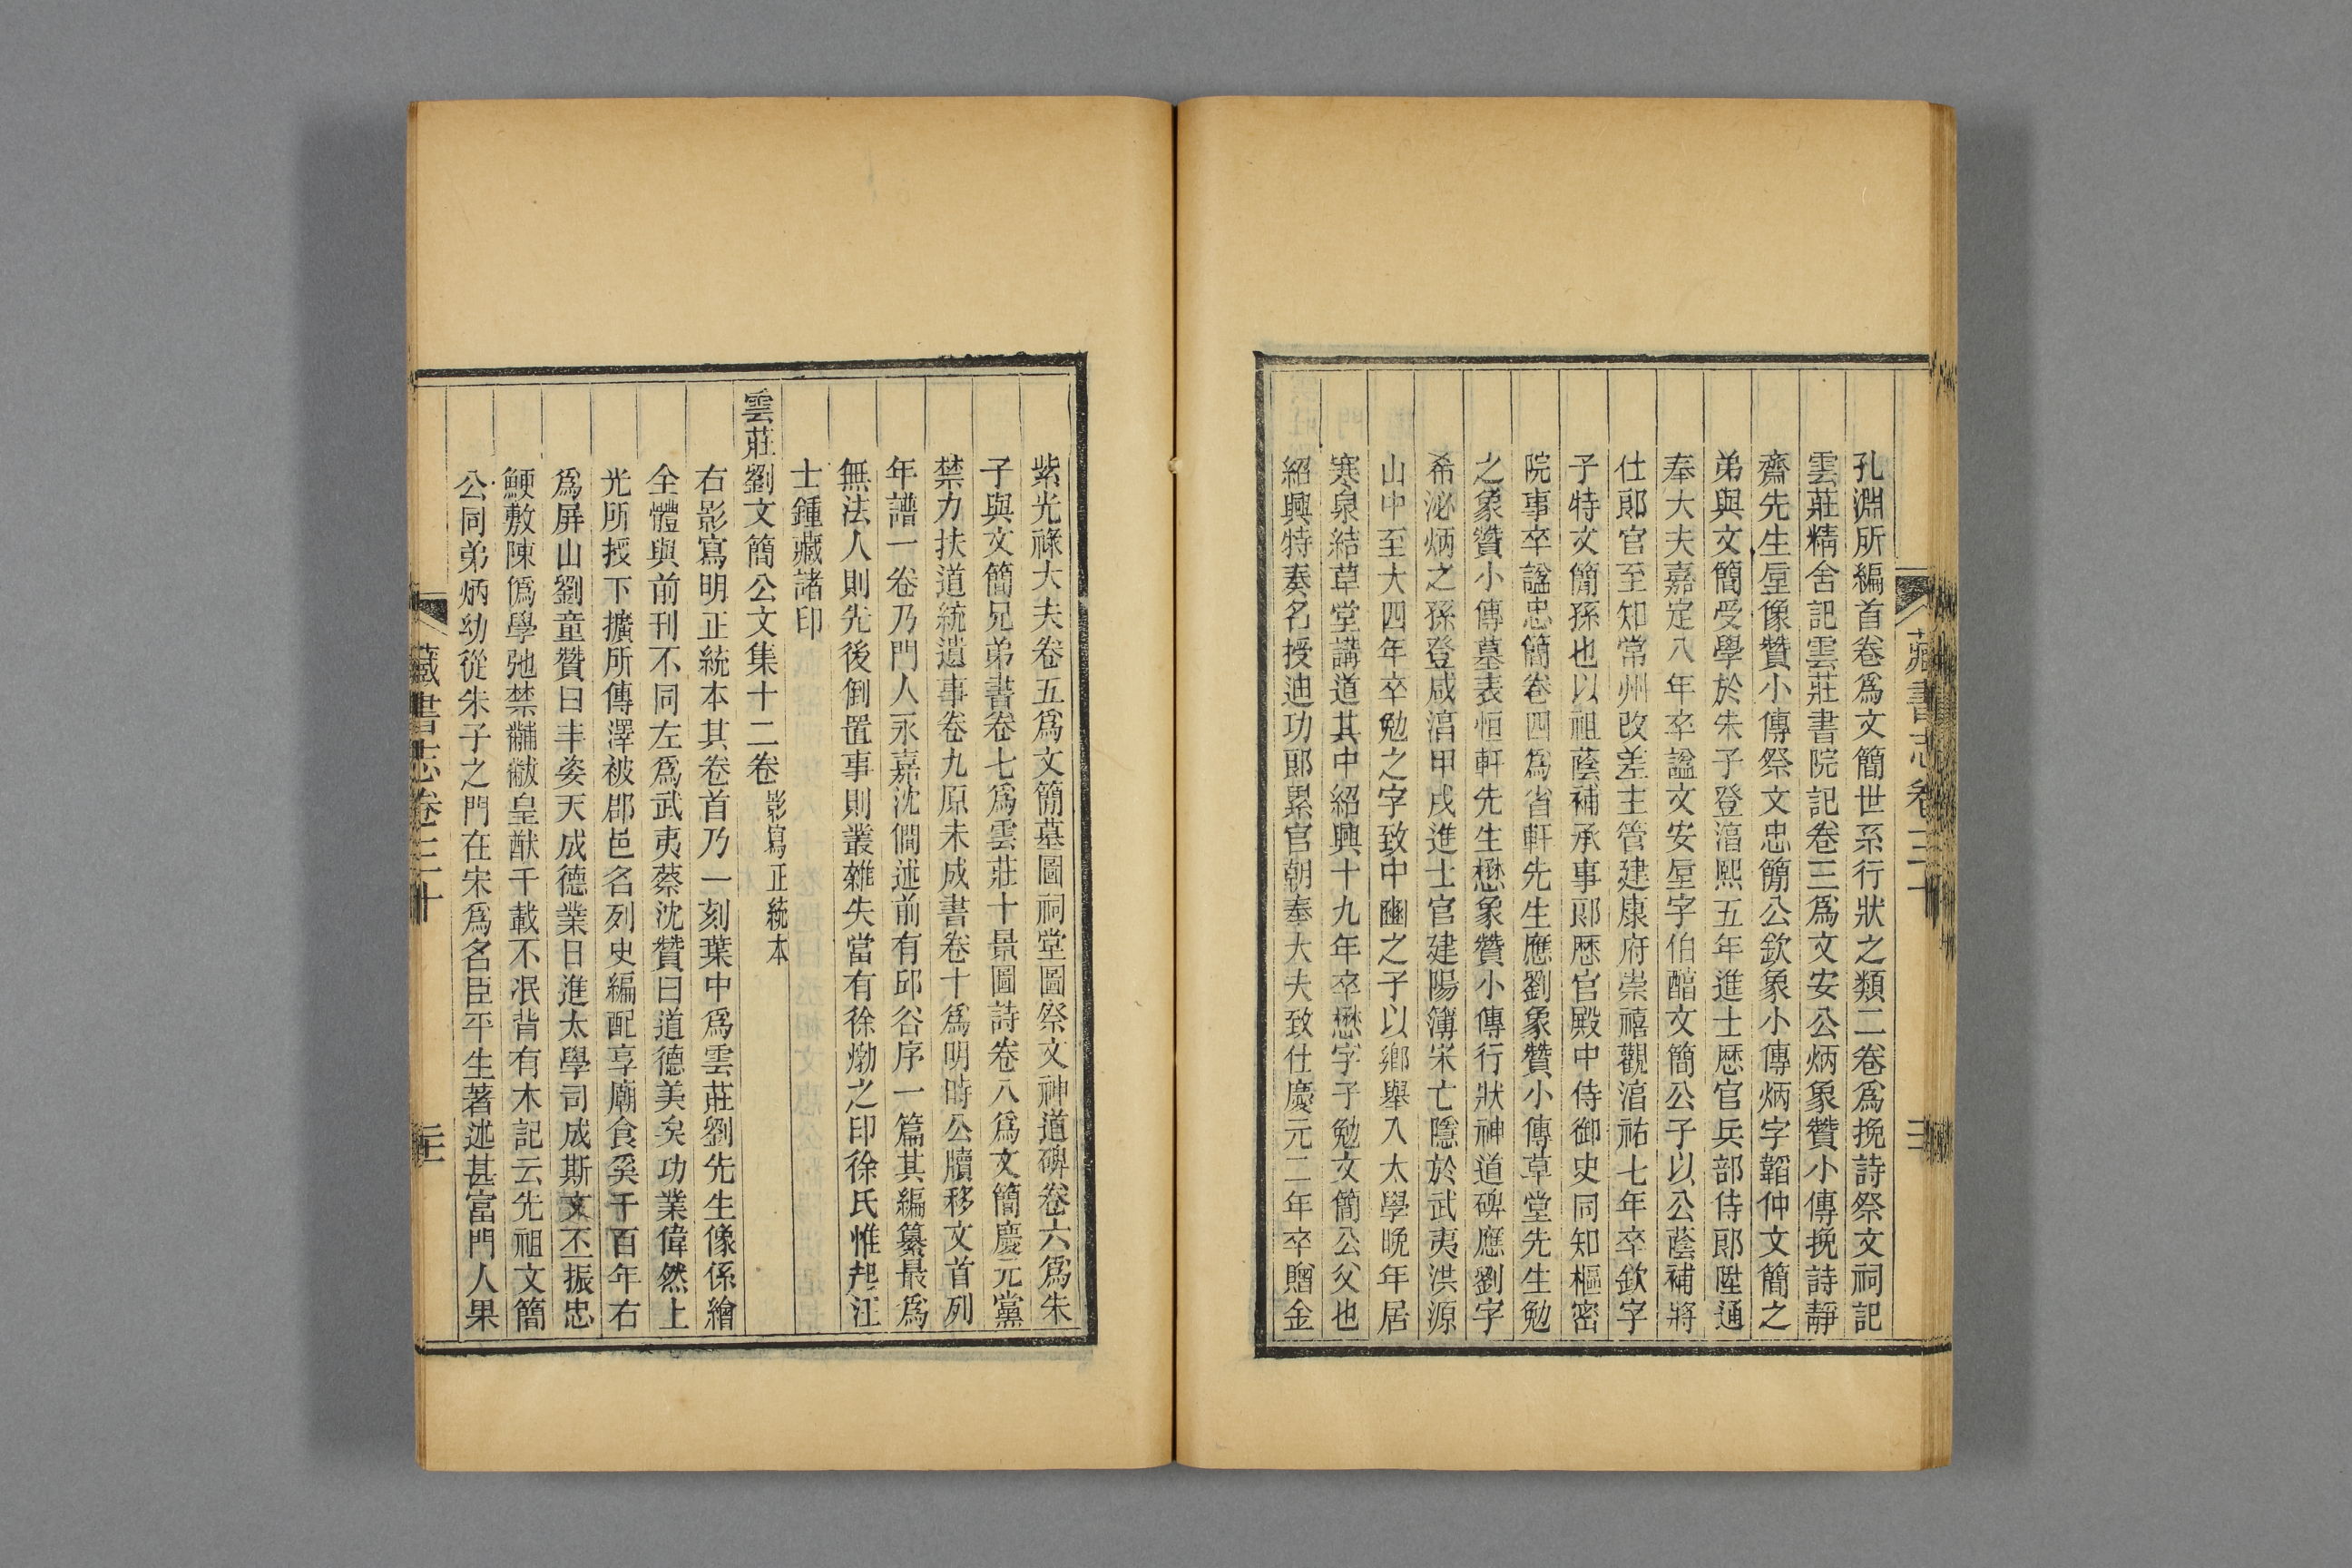 孔淵所編首卷爲文簡世系行狀之類二卷爲挽詩祭文祠記
雲莊精舍記雲莊書院記卷三爲文安公炳象贊小傳挽詩靜
齋先生垕像贊小傳祭文忠簡公欽象小傳炳字韜仲文簡之
弟與文簡受學於朱子登湻熙五年進士歷官兵部侍郞陞通
奉大夫嘉定八年卒諡文安垕字伯醕文簡公子以公蔭補將
仕郞官至知常州改差主管建康府崇禧觀湻祐七年卒欽字
子特文簡孫也以祖蔭補承事郞歷官殿中侍御史同知樞密
院事卒諡忠簡卷四爲省軒先生應劉象贊小傳草堂先生勉
之象贊小傳墓表恒軒先生懋象贊小傳行狀神道碑應劉字
希泌炳之孫登咸湻甲戌進士官建陽簿宋亡隱於武夷洪源
山中至大四年卒勉之字致中豳之子以鄉舉入太學晩年居
寒泉結草堂講道其中紹興十九年卒懋字子勉文簡公父也
紹興特奏名授迪功郞累官朝奉大夫致仕慶元二年卒贈金
紫光祿大夫卷五爲文簡墓圖祠堂圖祭文神道碑卷六爲朱
子與文簡兄弟書卷七爲雲莊十景圖詩卷八爲文簡慶元黨
禁力扶道統遺事卷九原未成書卷十爲明時公牘移文首列
年譜一卷乃門人永嘉沈僩述前有邱谷序一篇其編纂最爲
無法人則先後倒置事則叢雜失當有徐㶿之印徐氏惟起汪
士鍾藏諸印
雲莊劉文簡公文集十二卷影寫正統本
右影寫明正統本其卷首乃一刻葉中爲雲莊劉先生像係繪
全體與前刊不同左爲武夷蔡沈贊曰道德美矣功業偉然上
光所授下擴所傳澤被郡邑名列史編配享廟食奚千百年右
爲屏山劉童贊曰丰姿天成德業日進太學司成斯文丕振忠
鯁敷陳僞學弛禁黼黻皇猷千載不泯背有木記云先祖文簡
公同弟炳幼從朱子之門在宋爲名臣平生著述甚富門人果
藏書志卷三十